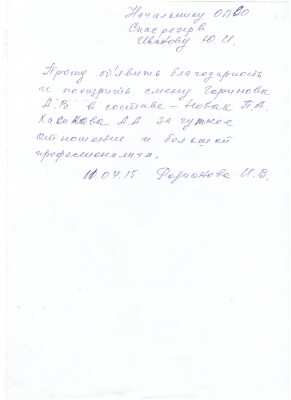 Начальнику ОПСО
Спасрезерв
Иванову Ю.И.
Прошу объявить благодарность
и поощрить смену Горинова
А.В. в составе - Новак П.А.
А.А. за чуткое
отношение и большой
профессионализм.
11.04.15 Родионова И.В.